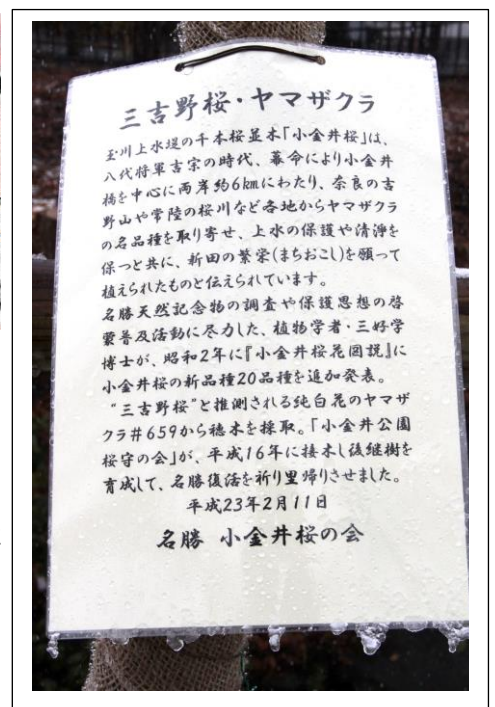 三吉野桜・ヤマザクラ
玉川上水堤の千本桜並木「小金井桜」は、
八代将軍吉宗の時代、幕命により小金井
橋を中心に両岸約6㎞にわたり、奈良の吉
野山や常陸の桜川など各地からヤマザクラ
の名品種を取り寄せ、上水の保護や清浄を
保つと共に、新田の繁栄(まちおこし)を願って
植えられたものと伝えられています。
名勝天然記念物の調査や保護思想の啓
蒙普及活動に尽力した、植物学者・三好学
博士が、昭和2年に『小金井桜花図説』に
小金井桜の新品種20品種を追加発表。
“三吉野桜”と推測される純白花のヤマザ
クラ#659から穂木を採取。「小金井公園
桜守の会」が、平成16年に接木し後継樹を
育成して、名勝復活を祈り里帰りさせました。
平成23年2月11日
名勝 小金井桜の会